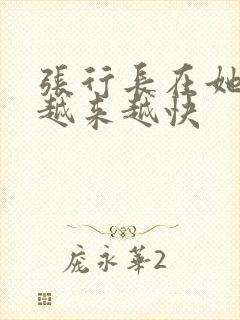 張行長在她
越来越快
庞永華2